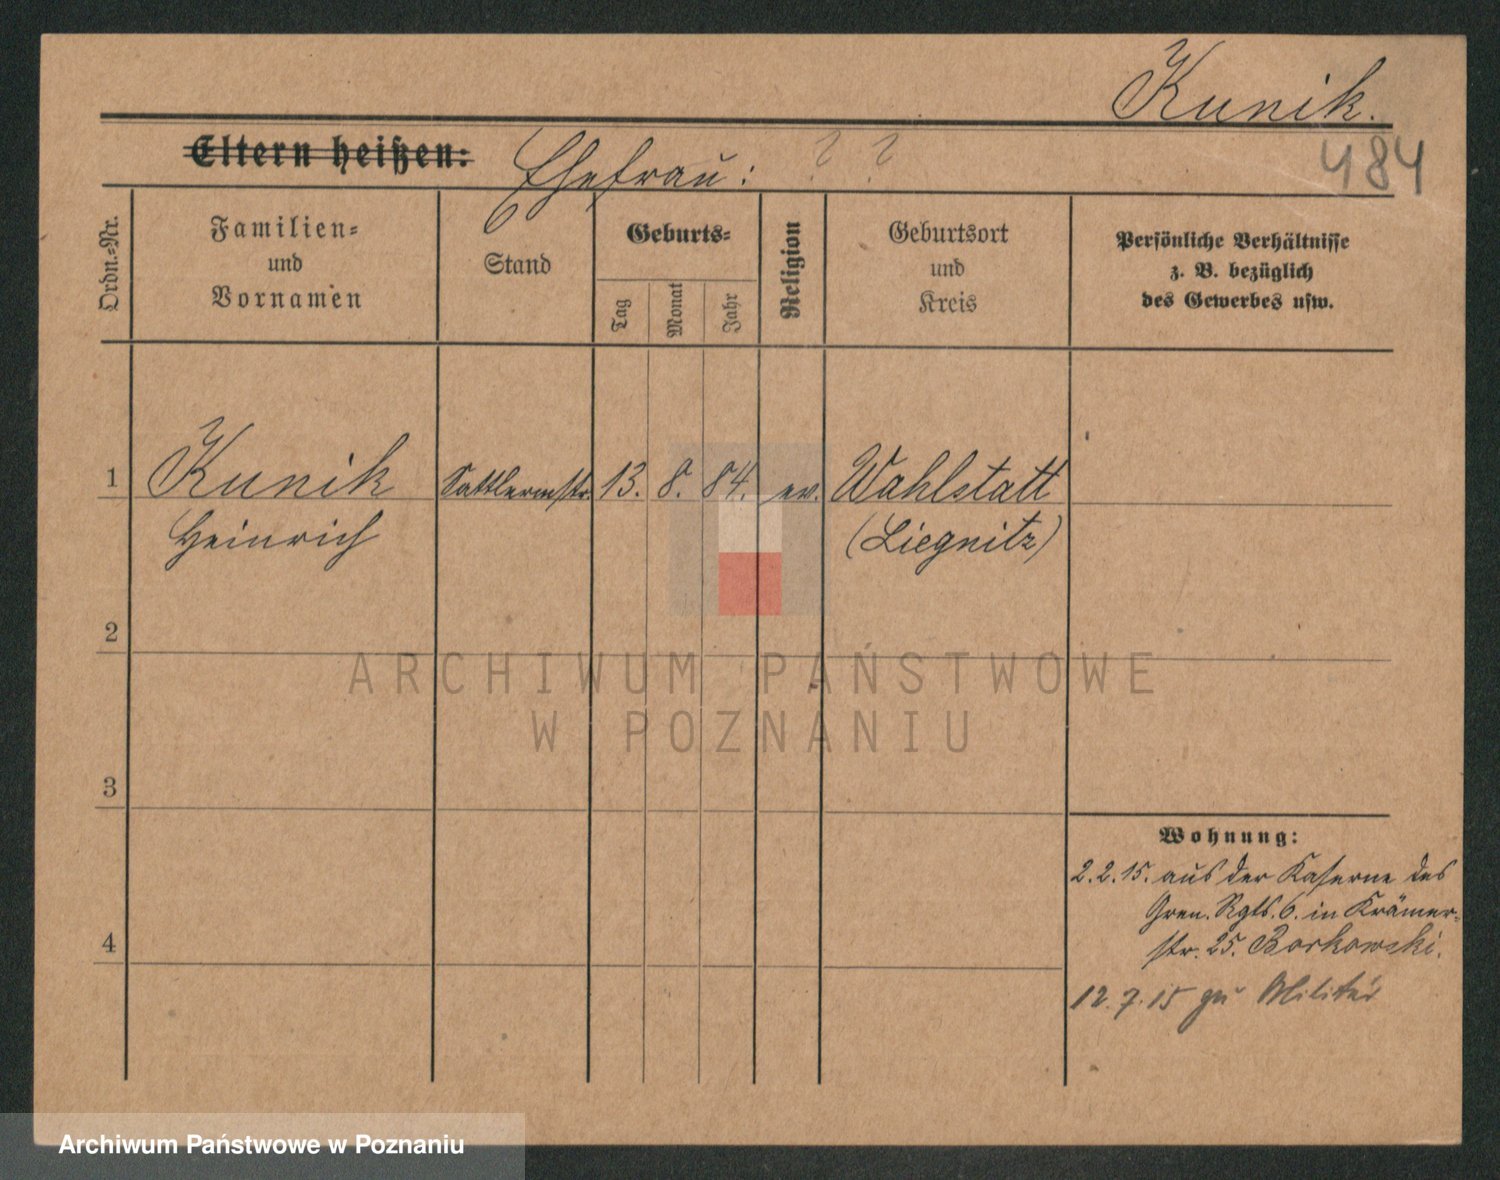 Kunik.
484
Eltern heißen: Ehefrau: ? ?
Ordn.=Nr.
Familien=
und
Vornamen
Stand
Geburts=
Tag
Monat
Jahr
Religion
Geburtsort
und
Kreis
Persönliche Verhältnisse
z. B. bezüglich
des Gewerbes usw.
1 Kunik Sattlermstr. 13. 8. 84. ev. Wahlstatt
Heinrich (Liegnitz)
2
3
4
Wohnung:
2.2.15. aus der Kaserne des
Gren. Rgts. 6. in Krämer-
str. 25. Borkowski.
12.7.15 zu Militär
ARCHIWUM PAŃSTWOWE
W POZNANIU
Archiwum Państwowe w Poznaniu